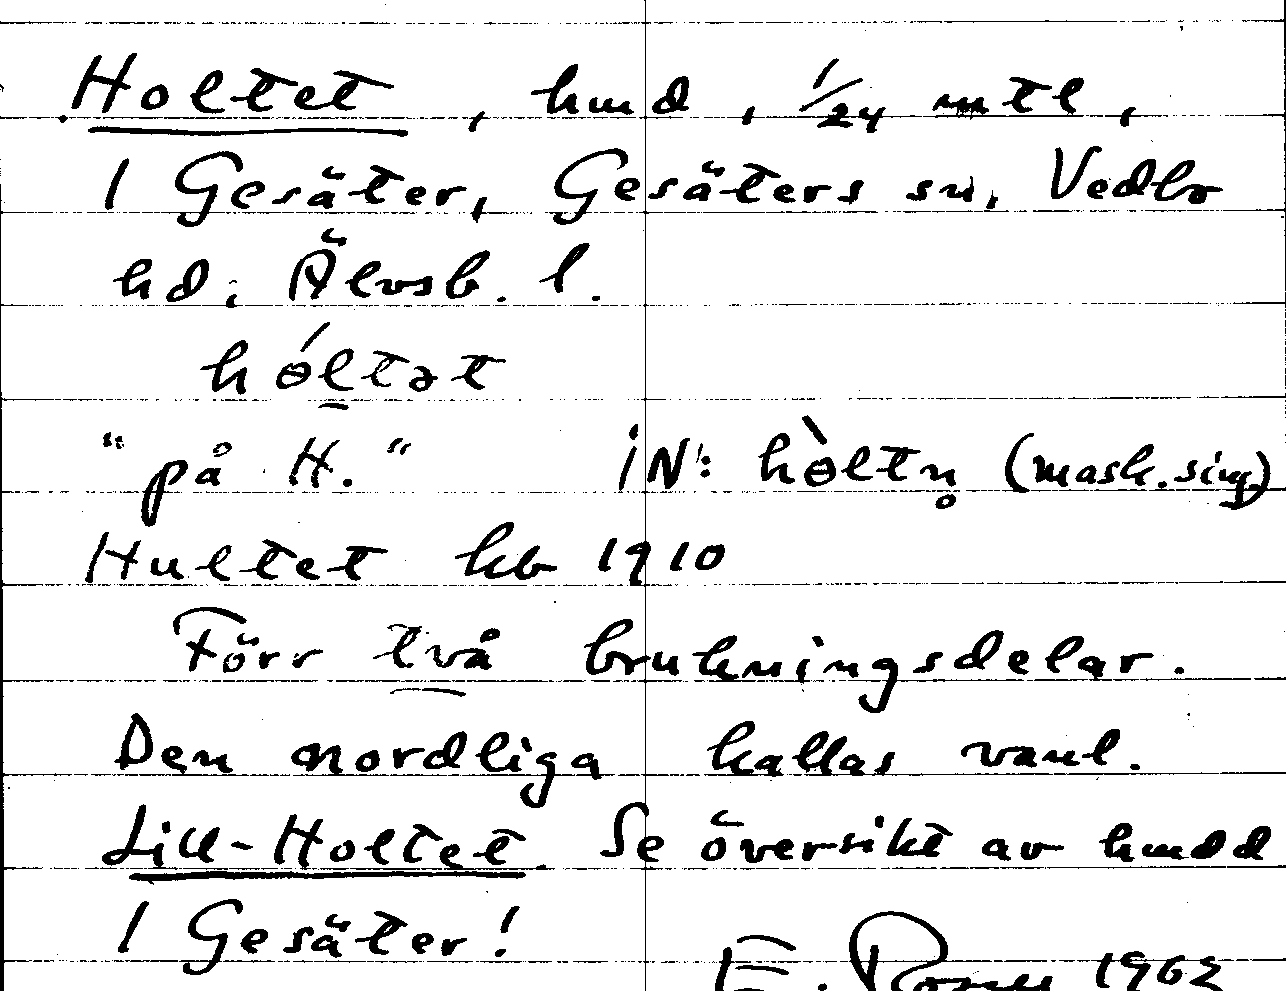 Holtet, hmd, 1/24 mtl,
1 Gesäter, Gesäters sn, Vedbo
hd, Älvsb. l.
hóltət
"på H." iN: hòltn̥ (mask. sing.)
Hultet kb 1910
Förr två brukningsdelar.
Den nordliga kallas vanl.
Lill-Holtet. Se översikt av hmdd
1 Gesäter!
E. 1962